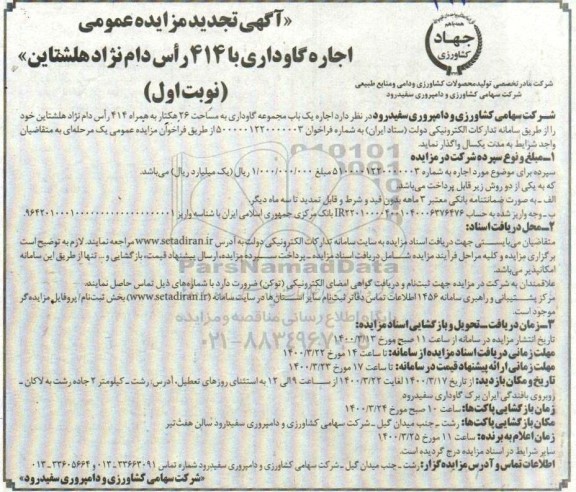 همه با هم
جهاد
کشاورزی
شرکت مادر تخصصی تولید محصولات کشاورزی ودامی ومنابع طبیعی
شرکت سهامی کشاورزی و دامپروری سفیدرود
«آگهی تجدید مزایده عمومی
اجاره گاوداری با ۴۱۴ رأس دام نژاد هلشتاین»
(نوبت اول)
شرکت سهامی کشاورزی و دامپروری سفیدرود در نظر دارد اجاره یک باب مجموعه گاوداری به مساحت ۲۶ هکتار به همراه ۴۱۴ رأس دام نژاد هلشتاین خود
را از طریق سامانه تدارکات الکترونیکی دولت (ستاد ایران) به شماره فراخوان ۵۰۰۰۰۰۱۲۲۰۰۰۰۰۳ از طریق فراخوان مزایده عمومی یک مرحله‌ای به متقاضیان
واجد شرایط به مدت یکسال واگذار نماید.
۱-مبلغ و نوع سپرده شرکت در مزایده
سپرده برای موضوع مورد اجاره به شماره ۵۱۰۰۰۰۱۲۲۰۰۰۰۰۳ مبلغ ۱/۰۰۰/۰۰۰/۰۰۰ ریال (یک میلیارد ریال) می‌باشد.
که به یکی از دو روش زیر قابل پرداخت می‌باشد.
الف - به صورت ضمانتنامه بانکی معتبر ۳ ماهه بدون قید و شرط و قابل تمدید تا سه ماه دیگر.
ب - وجه واریز شده به حساب بانک مرکزی جمهوری اسلامی ایران با شناسه واریز
۲-محل دریافت اسناد:
متقاضیان می‌بایستی جهت دریافت اسناد مزایده به سایت سامانه تدارکات الکترونیکی دولت به آدرس www.setadiran.ir مراجعه نمایند. لازم به توضیح است
برگزاری مزایده و کلیه مراحل فرآیند مزایده شامل دریافت اسناد مزایده - پرداخت سپرده مزایده، ارسال پیشنهاد قیمت، بازگشایی و... تنها از طریق این سامانه
امکانپذیر می‌باشد.
علاقمندان به شرکت در مزایده جهت ثبت‌نام و دریافت گواهی امضای الکترونیکی (توکن) ضرورت دارد با شماره‌های ذیل تماس حاصل نمایند.
مرکز پشتیبانی و راهبری سامانه ۱۴۵۶ اطلاعات تماس دفاتر ثبت‌نام سایر استان‌ها در سایت سامانه (www.setadiran.ir) بخش ثبت‌نام / پروفایل مزایده گر
موجود است.
۳-زمان دریافت - تحویل و بازگشایی اسناد مزایده:
تاریخ انتشار مزایده در سامانه از ساعت ۱۱ صبح مورخ ۱۴۰۰/۳/۱۳
مهلت زمانی دریافت اسناد مزایده از سامانه: تا ساعت ۱۴ مورخ ۱۴۰۰/۳/۲۲
مهلت زمانی ارائه پیشنهاد قیمت در سامانه: تا ساعت ۱۷ مورخ ۱۴۰۰/۳/۲۳
تاریخ و مکان بازدید: از تاریخ ۱۴۰۰/۳/۱۷ لغایت ۱۴۰۰/۳/۲۲ از ساعت ۹ الی ۱۲ به استثنای روزهای تعطیل، آدرس: رشت - کیلومتر ۲ جاده رشت به لاکان -
روبروی بافندگی ایران برک گاوداری سفیدرود.
زمان بازگشایی پاکت‌ها: ساعت ۱۰ صبح مورخ ۱۴۰۰/۳/۲۴
مکان بازگشایی پاکت‌ها: رشت - جنب میدان گیل - شرکت سهامی کشاورزی و دامپروری سفیدرود سالن هفت تیر
زمان اعلام به برنده: ساعت ۱۱ مورخ ۱۴۰۰/۳/۲۵
سایر شرایط در اسناد مزایده درج گردیده است.
اطلاعات تماس و آدرس مزایده گزار: رشت - جنب میدان گیل - شرکت سهامی کشاورزی و دامپروری سفیدرود شماره تماس ۳۳۶۶۳۰۹۱-۰۱۳ و ۳۳۶۰۵۶۶۴-۰۱۳
«شرکت سهامی کشاورزی و دامپروری سفیدرود»
ParsNamadData
پایگاه اطلاع رسانی مناقصه و مزایده
۰۲۱-۸۸۳۴۹۶۷۰-۵